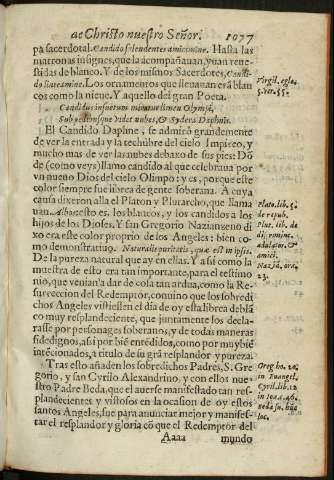 de Christo nuestro Señor. 1077
pa sacerdotal. Candido splendentes amicimine. Hasta las
matronas insignes, que la acompañauan, yuan reue-
stidas de blanco. Y de los mismos Sacerdotes, Candi-
Los ornamentos que lleuauan erã blan
cos como la nieue. Y aquello del gran Poeta.
Candidus insuetum miratur limen Olympi,
Sub pedibusque videt nubes, & Sydera Daphnis.
El Candido Daphne, se admirò grandemente
de ver la entrada y la techũbre del cielo Impireo, y
mucho mas de ver las nubes debaxo de sus pies: Dõ
de (como veys) llamo candido al que celebraua por
vn nueuo Dios del cielo Olimpo: y es, porque este
color siempre fue librea de gente soberana. A cuya
causa dixeron alla el Platon y Plutarcho, que llama
uan Albans esto es, los blancos, y los candidos a los
hijos de los Dioses. Y san Gregorio Nazianzeno di
xo era este color proprio de los Angeles: bien co-
mo demonstratiuo. Naturalis puritatis, quæ est in ipsis.
De la pureza natural que ay en ellas. Y a si como la
muestra de esto era tan importante, para el testimo
nio, que venian a dar de cosa tan ardua, como la Re
surreccion del Redemptor, conuino que los sobredi
chos Angeles vistiessen el dia de oy esta librea deblã
co muy resplandeciente, que juntamente los decla-
rasse por personages soberanos, y de todas maneras
fidedignos, assi por biẽ entẽdidos, como por muy biẽ
intẽcionados, a titulo de su grã resplandor y pureza.
Tras esto añaden los sobredichos Padres, S. Gre
gorio, y san Cyrilo Alexandrino, y con ellos nue
stro Padre Beda, que el auerse manifestado tan res-
plandecientes y vistosos en la ocasion de oy estos
santos Angeles, fue para anunciar mejor y manifes-
tar el resplandor y gloria cõ que el Redemptor del
Aaaa mundo
Virgil. egło.
5. ver. 55.
Plato. lib. 5.
de repub.
Plut. lib. de
adulator. &
amici.
Nazia. ora.
23.
Greg. ho. 21.
in Euangel.
Cyril. lib. 12
in Ioa. c. 46.
Beda su. hũc
loc.